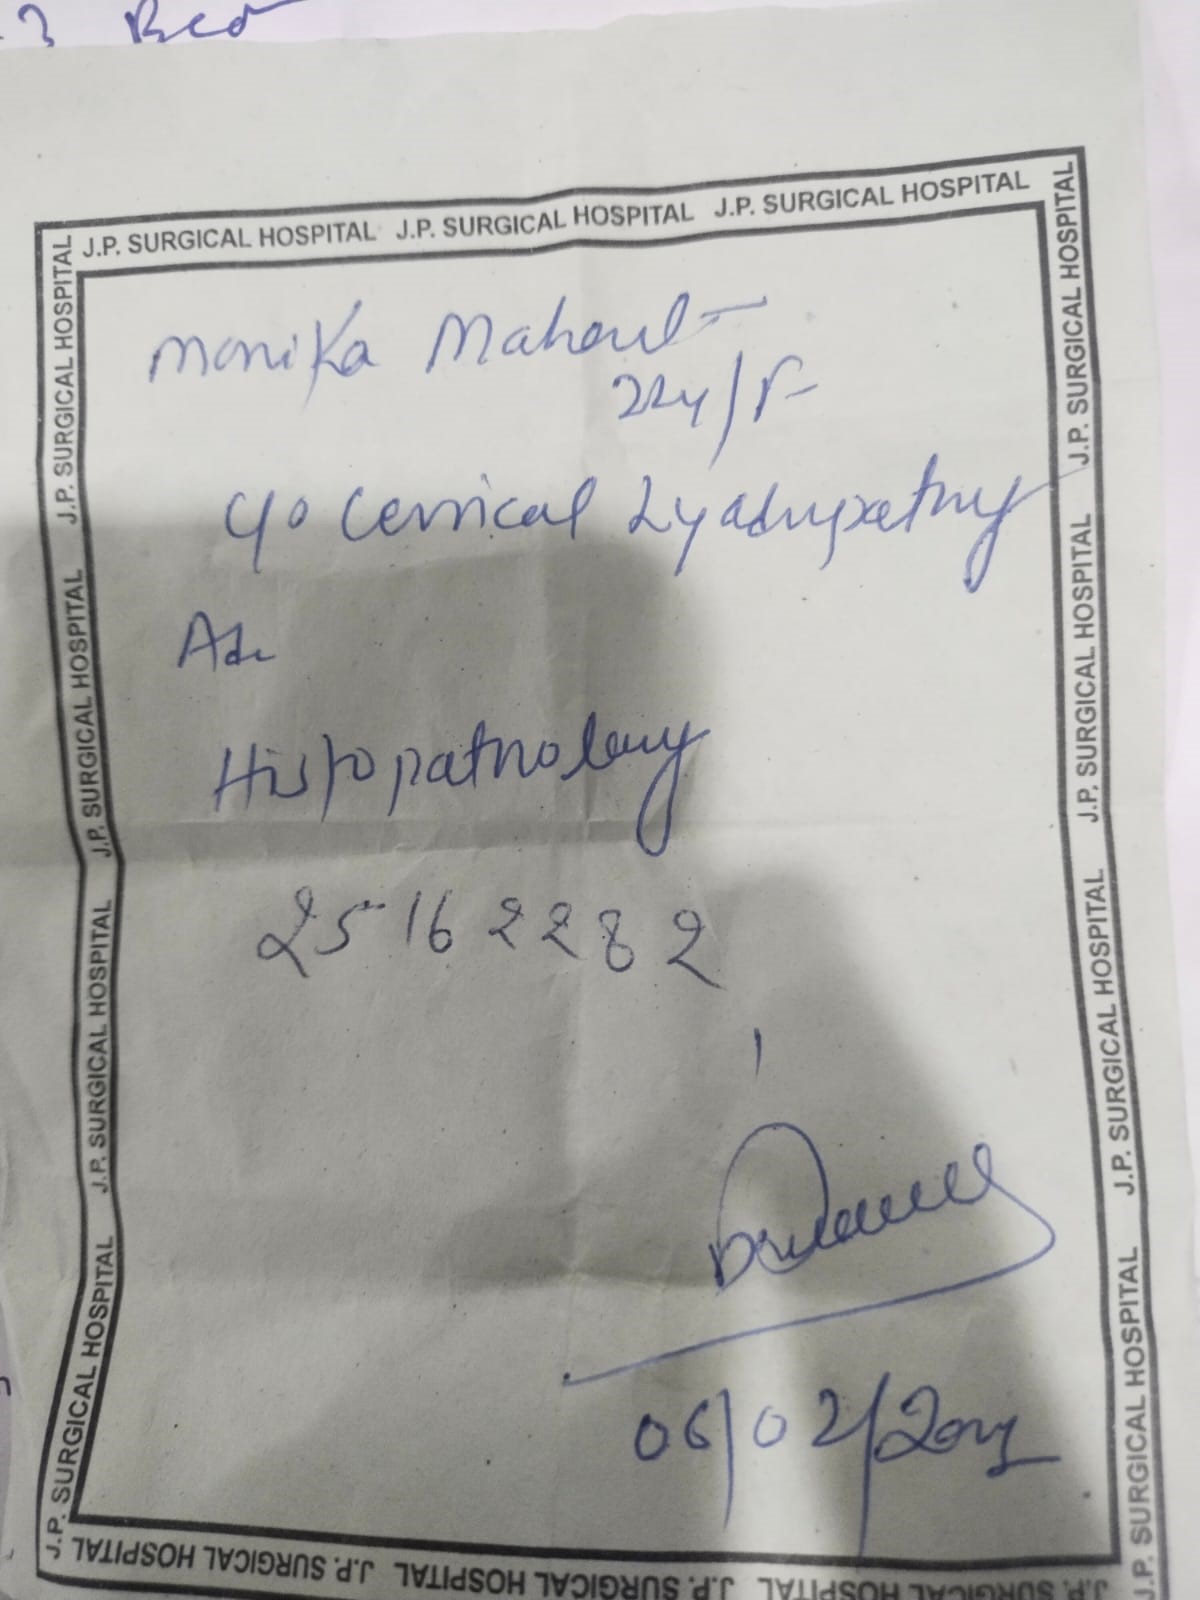 Bed
J.P. SURGICAL HOSPITAL J.P. SURGICAL HOSPITAL J.P. SURGICAL HOSPITAL
Monika
22y/F
c/o Cervical Lyadnpathy
Adv
Histopathology
25162282
06/02/202
J.P. SURGICAL HOSPITAL J.P. SURGICAL HOSPITAL J.P. SURGICAL HOSPITAL J.P. SURGICAL HOSPITAL J.P. SURGICAL HOSPITAL
J.P. SURGICAL HOSPITAL J.P. SURGICAL HOSPITAL J.P. SURGICAL HOSPITAL J.P. SURGICAL HOSPITAL
J.P. SURGICAL HOSPITAL J.P. SURGICAL HOSPITAL J.P. SURGICAL HOSPITAL